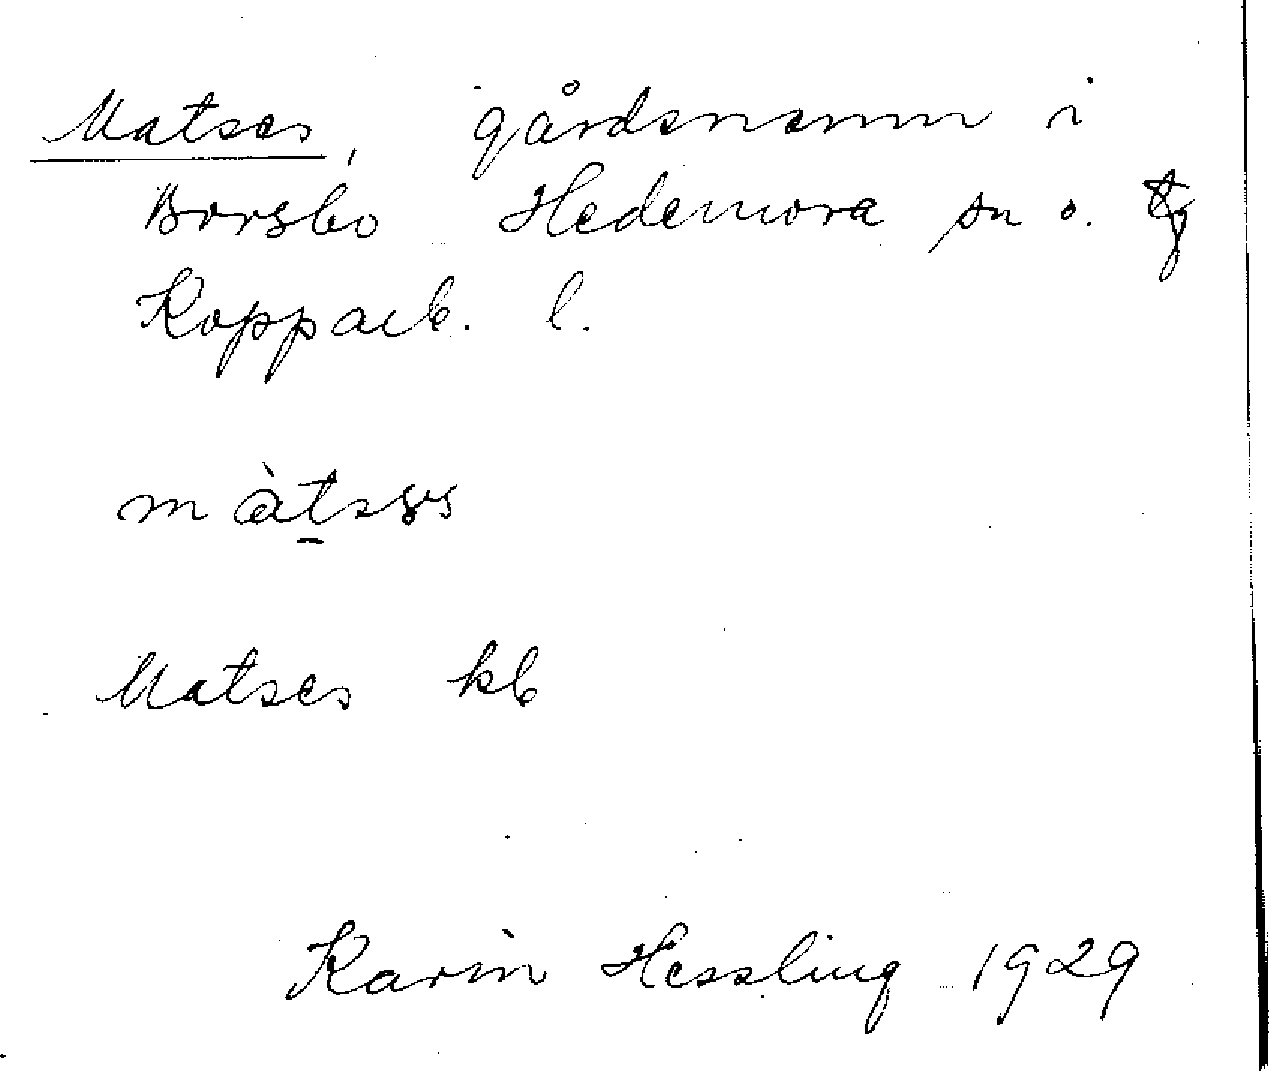 Matses, gårdsnamn i
Borsbo Hedemora sn o. tg
Kopparb. l.
màtsəs
Matses kb
Karin Hessling 1929